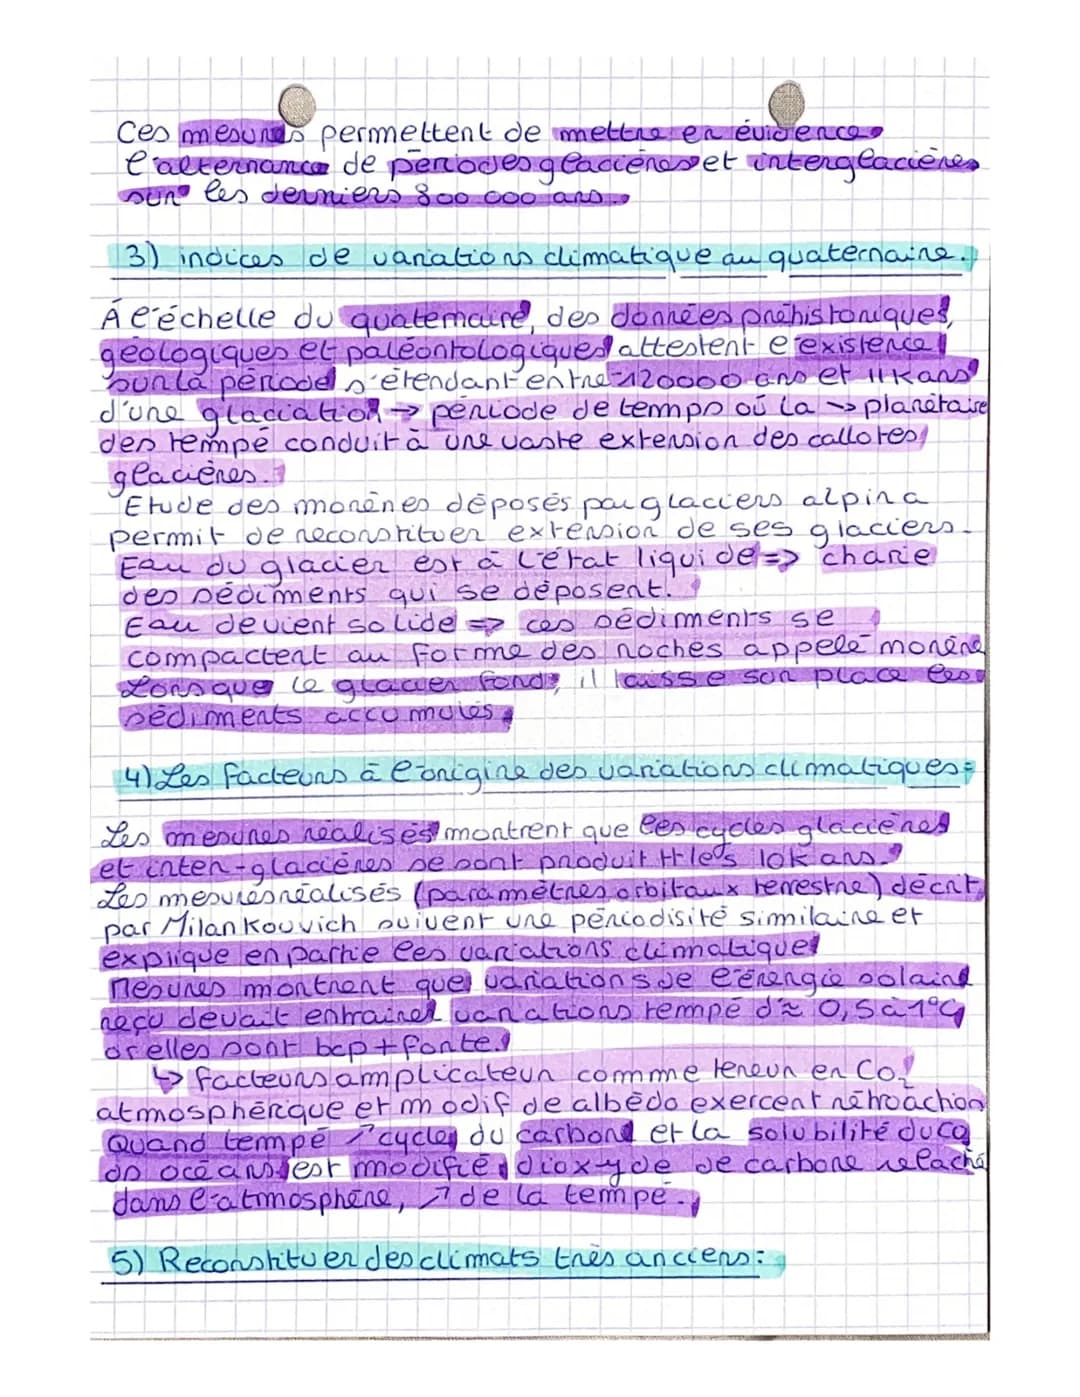 Ces mesures permettent de mettre en évidence
l'alternance de périodes glacières et interglacières
sur les derniers 800 000 ans.
3) indices de variations climatique au quaternaire.
À l'échelle du quaternaire, des données préhistoriques,
géologiques et paléontologiques attestent l'existence
sur la période s'étendant entre -120000 ans et 11K ans
d'une glaciation → période de temps où la ↘ planétaire
des tempé conduit à une vaste extension des callotes
glacières.
Etude des morènes déposés par glaciers alpin a
permit de reconstituer extension de ses glaciers.
Eau du glacier est à l'état liquide => charie
des sédiments qui se déposent.
Eau devient solide => ces sédiments se
compactent au forme des roches appelé morène
Lorsque le glacier fond, il laisse sur place les
sédiments accumulés
4) Les facteurs à l'origine des variations climatiques:
Les mesures réalisés montrent que les cycles glacières
et inter-glacières se sont produit tt les 10k ans.
Les mesures réalisés (paramètres orbitaux terrestre) décrit
par Milankouvich suivent une périodisité similaire et
explique en partie les variations climatique
Mesures montrent que variations de l'énergie solaire
reçu devait entrainer variations tempé d'≈ 0,5 à 1°C
or elles sont bcp + forte.
↳ facteurs amplicateur comme teneur en CO2
atmosphérique et modif de albédo exercent rétroaction
Quand tempé ↗ cycle du carbone et la solubilité du co2
ds océans est modifié dioxyde de carbone relaché
dans l'atmosphère, ↗ de la tempé.
5) Reconstituer des climats très anciens: